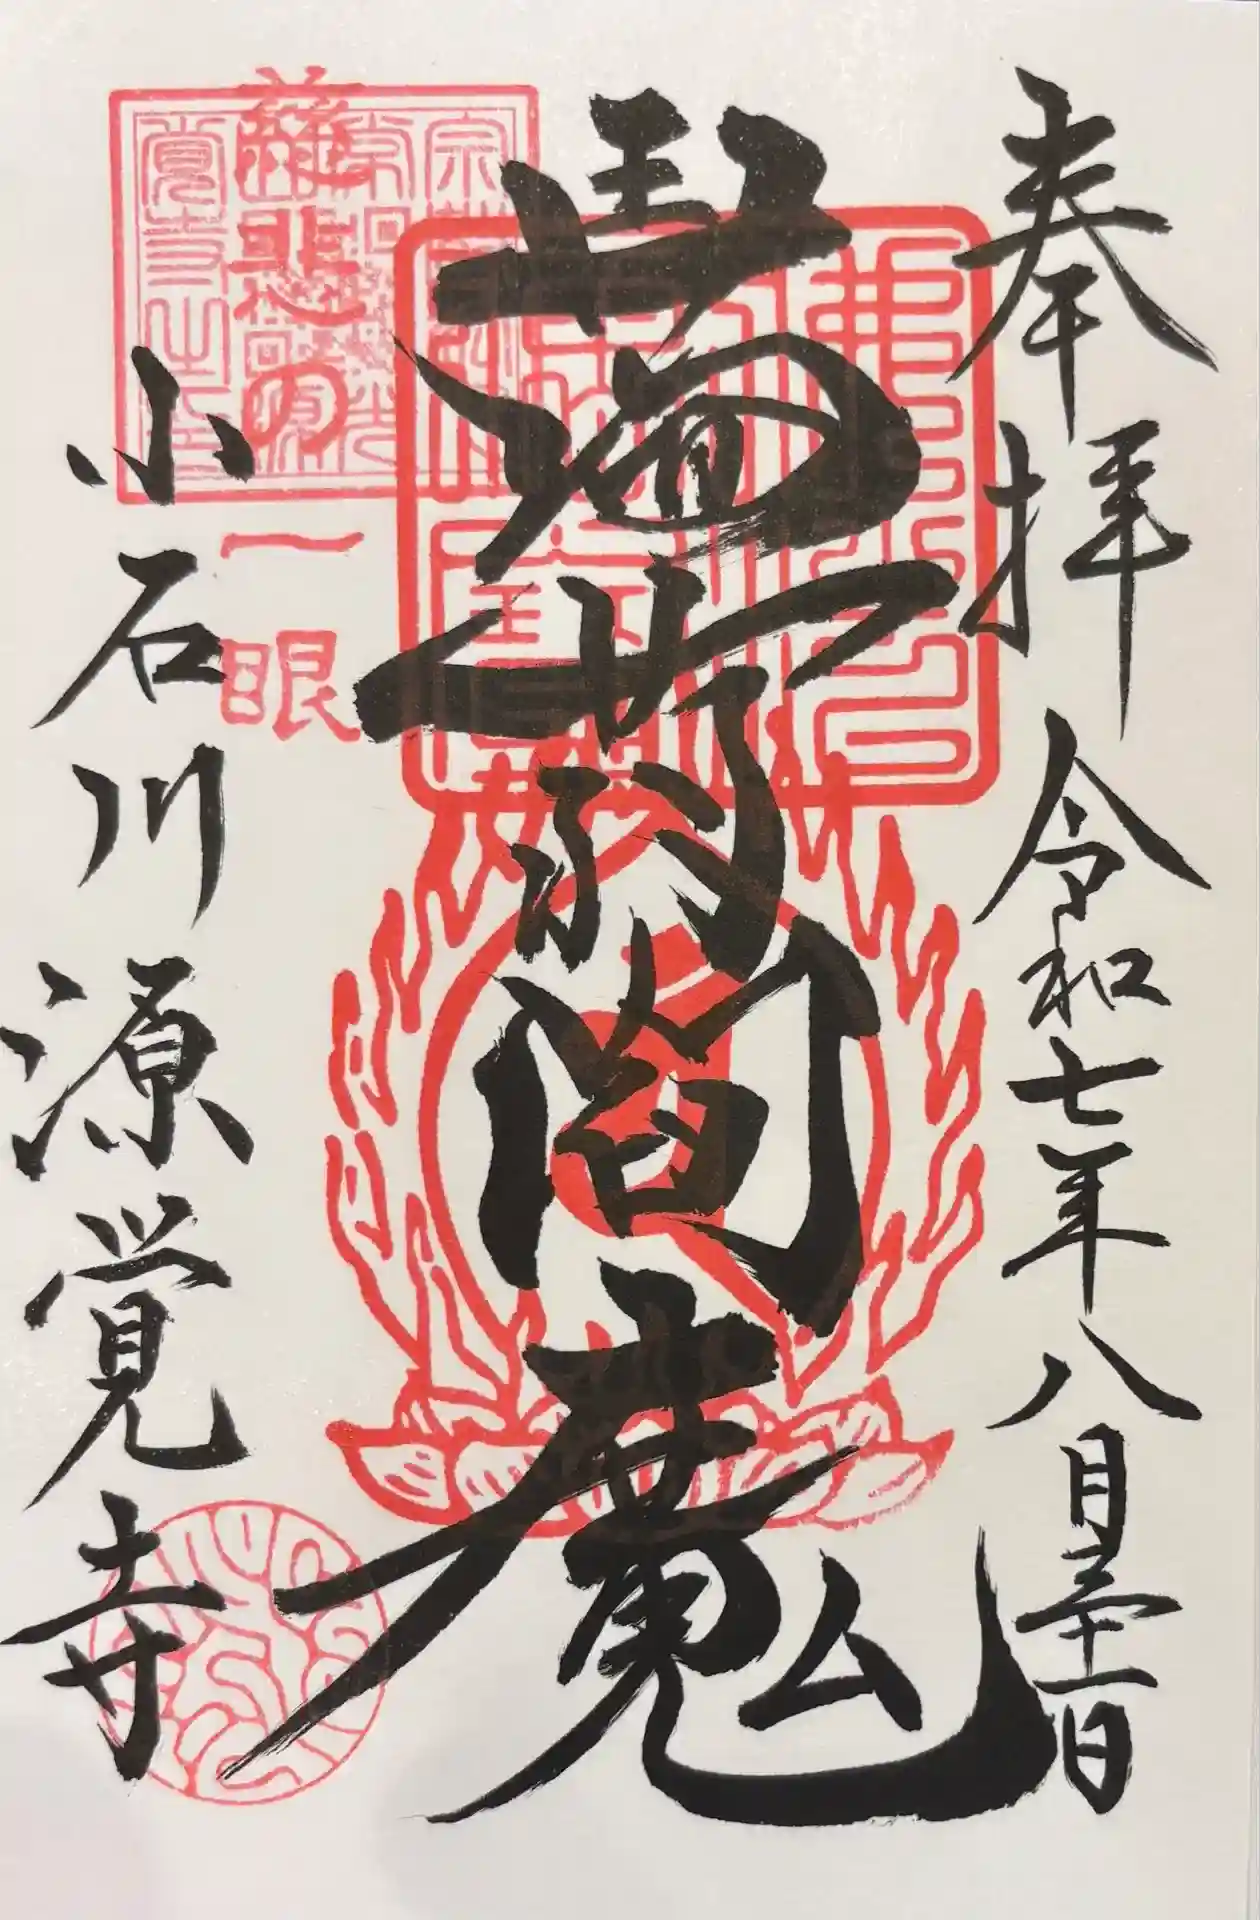 奉拝 令和七年八月三十一日
蒟蒻閻魔
慈悲の一眼
小石川源覚寺